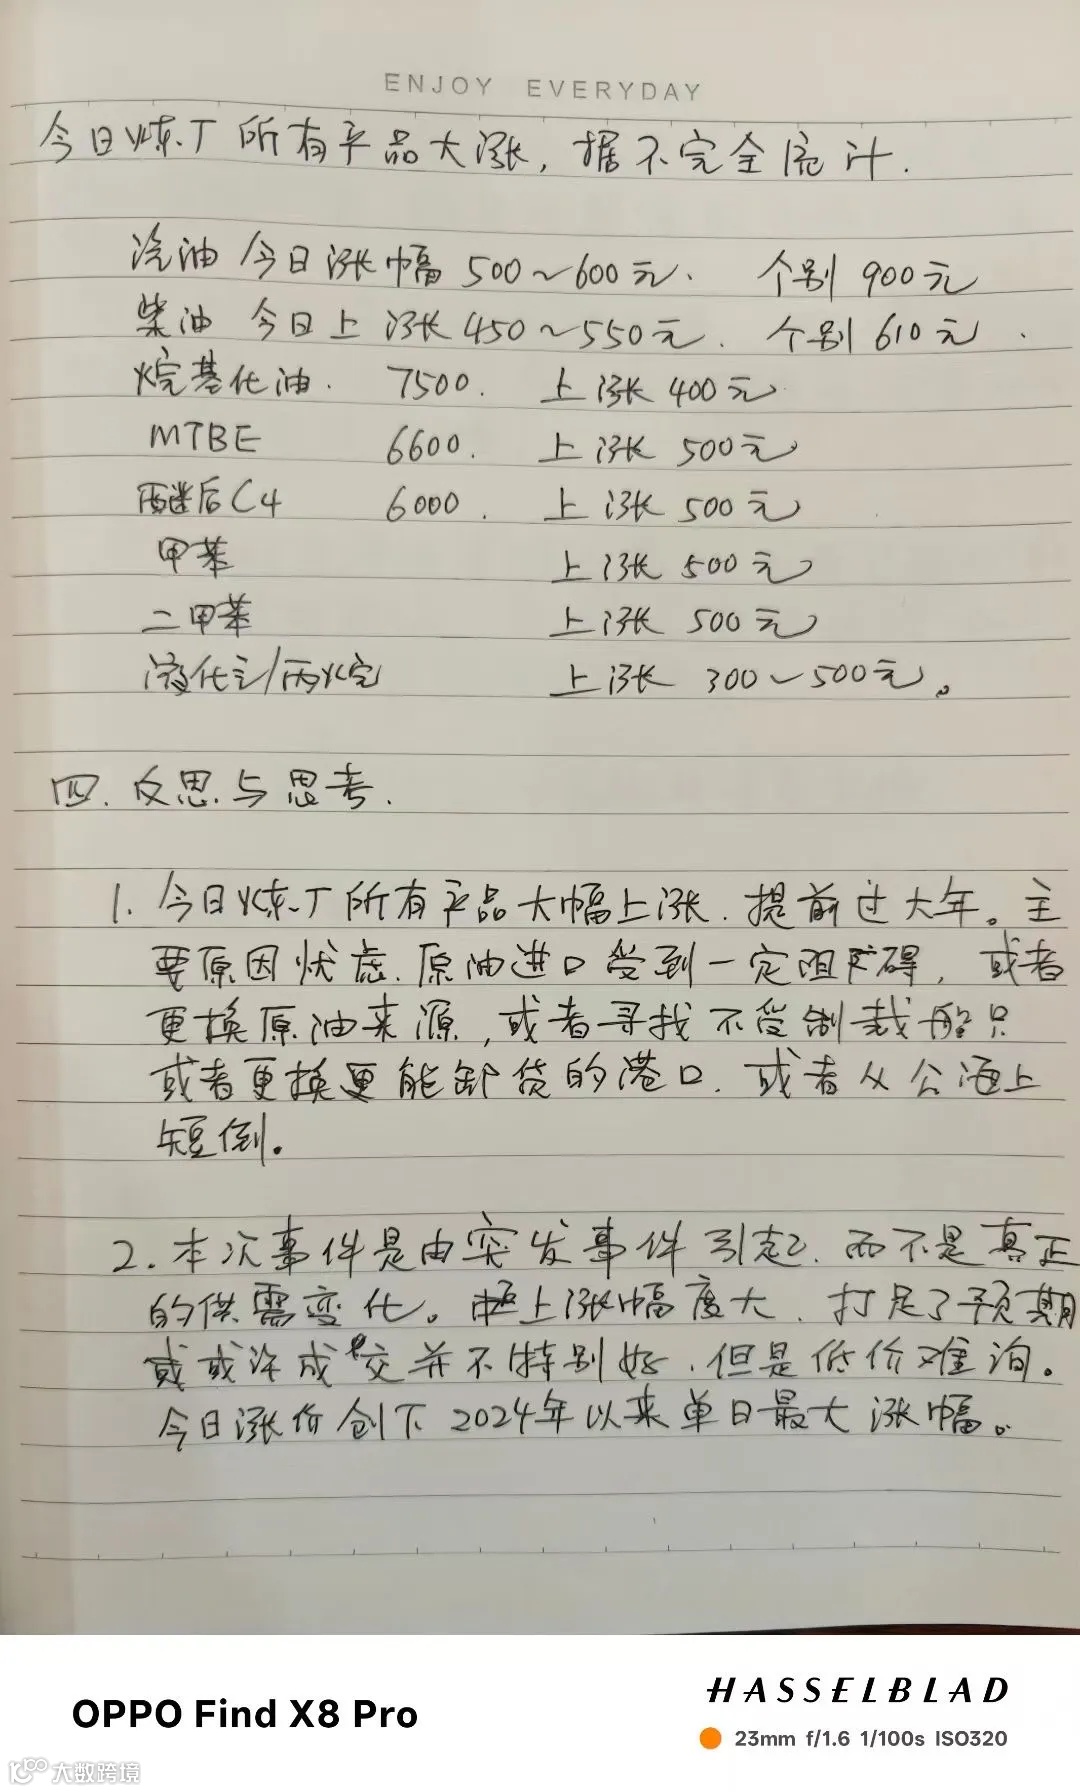 ENJOY EVERYDAY
今日炼厂所有产品大涨,据不完全统计.
汽油 今日涨幅 500~600元. 个别 900元
柴油 今日上涨 450~550元. 个别 610元.
烷基化油. 7500. 上涨 400元
MTBE 6600. 上涨 500元
醚后C4 6000. 上涨 500元
甲苯 上涨 500元
二甲苯 上涨 500元
液化气/丙烷 上涨 300~500元。
四. 反思与思考.
1. 今日炼厂所有产品大幅上涨.提前过大年。主
要原因忧虑.原油进口受到一定阻碍,或者
更换原油来源,或者寻找不受制裁船只
或者更换更能卸货的港口.或者从公海上
短倒。
2. 本次事件是由突发事件引起.而不是真正
的供需变化。上涨幅度大.打足了预期
或许成交并不特别好.但是低价难询。
今日涨价创下2024年以来单日最大涨幅。
OPPO Find X8 Pro
HASSELBLAD
23mm f/1.6 1/100s ISO320
大数跨境